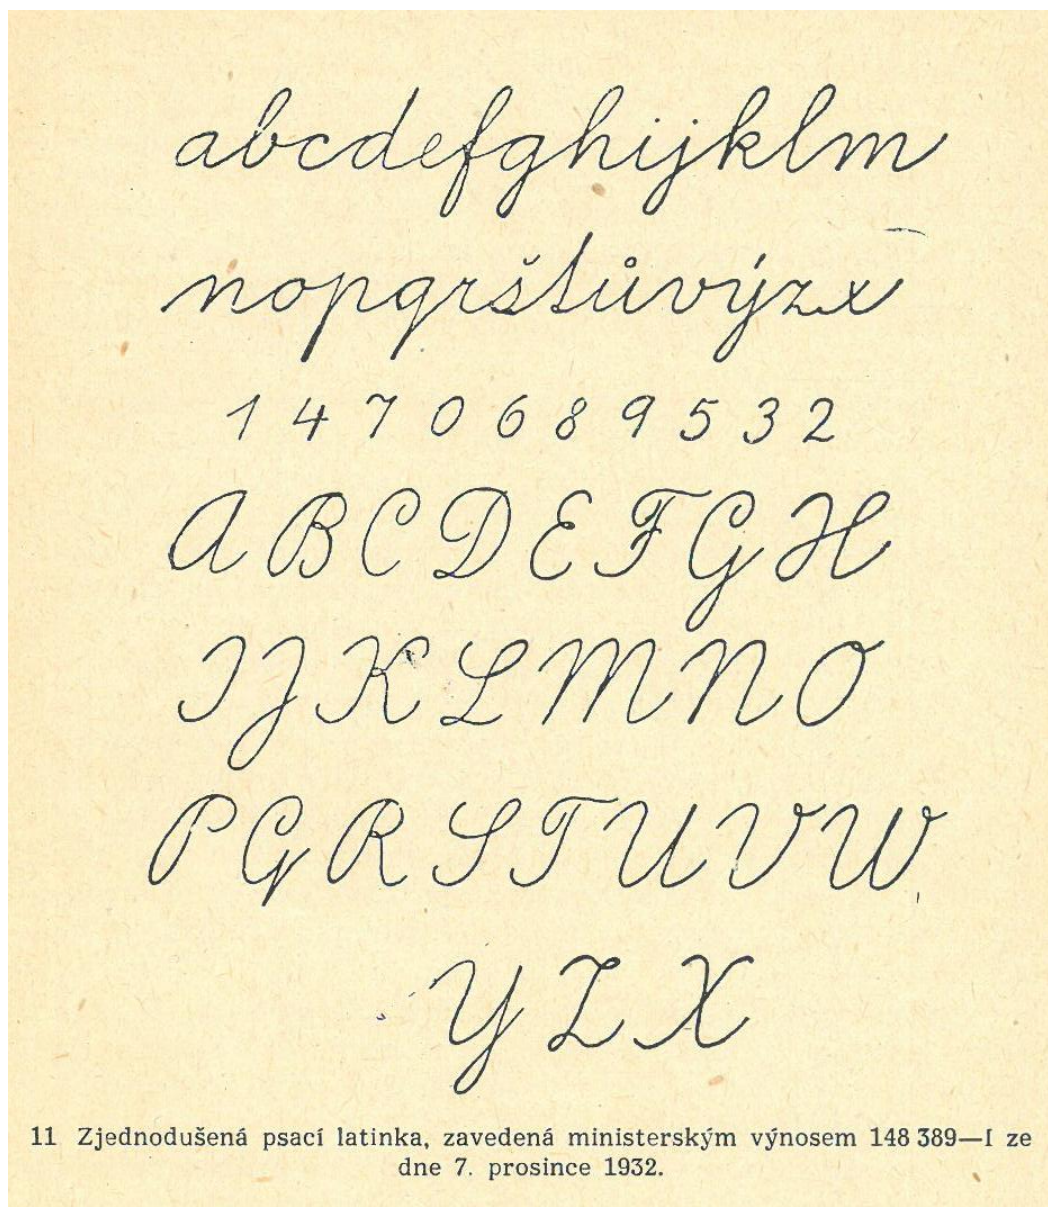 abcdefghijklm
nopqrsštůvýzx
1 4 7 0 6 8 9 5 3 2
A B C D E F G H
I J K L M N O
P Q R S T U V W
Y Z X
11 Zjednodušená psací latinka, zavedená ministerským výnosem 148 389—I ze
dne 7. prosince 1932.